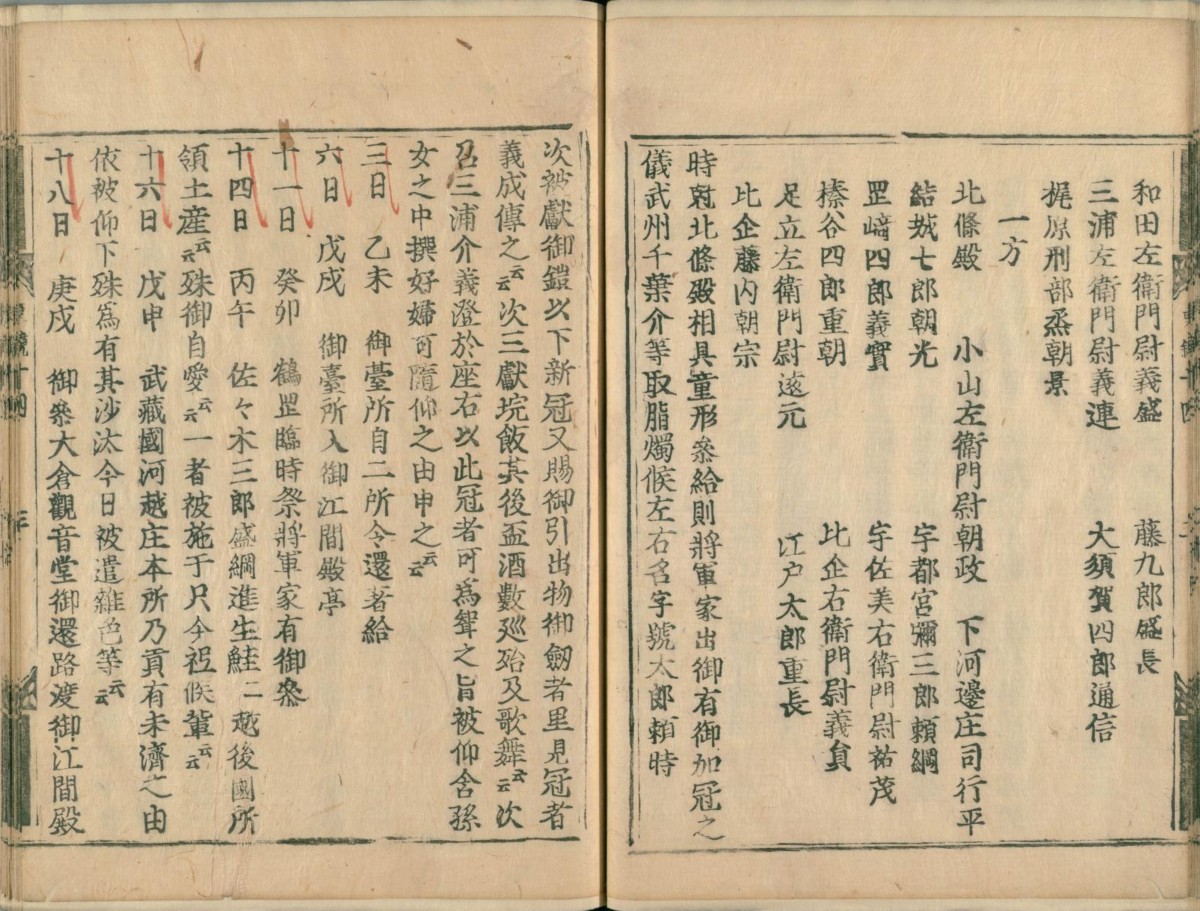 和田左衛門尉義盛　藤九郎盛長
三浦左衛門尉義連　大須賀四郎通信
梶原刑部烝朝景
一方
北條殿　小山左衛門尉朝政　下河邊庄司行平
結城七郎朝光　宇都宮彌三郎頼綱
罡﨑四郎義實　宇佐美右衛門尉祐茂
榛谷四郎重朝　比企右衛門尉義貟
足立左衛門尉遠元　江户太郎重長
比企藤内朝宗
時尅北條殿相具童形叅給則將軍家出御有御加冠之
儀武州千葉介等取脂燭候左右名字號太郎頼時
次被獻御鎧以下新冠又賜御引出物御劔者里見冠者
義成傳之云云次三獻垸飯其後盃酒數巡殆及歌舞云云次
召三浦介義澄於座右以此冠者可爲聟之旨被仰含孫
女之中撰好婦可隨仰之由申之云云
三日　乙未　御臺所自二所令還著給
六日　戊戌　御臺所入御江間殿亭
十一日　癸卯　鶴罡臨時祭將軍家有御叅
十四日　丙午　佐々木三郎盛綱進生鮭二越後國所
領土産云云殊御自愛云云一者被施于只今祗候輩云云
十六日　戊申　武藏國河越庄本所乃貢有未濟之由
依被仰下殊爲有其沙汰今日被遣雜色等云云
十八日　庚戌　御叅大倉觀音堂御還路渡御江間殿